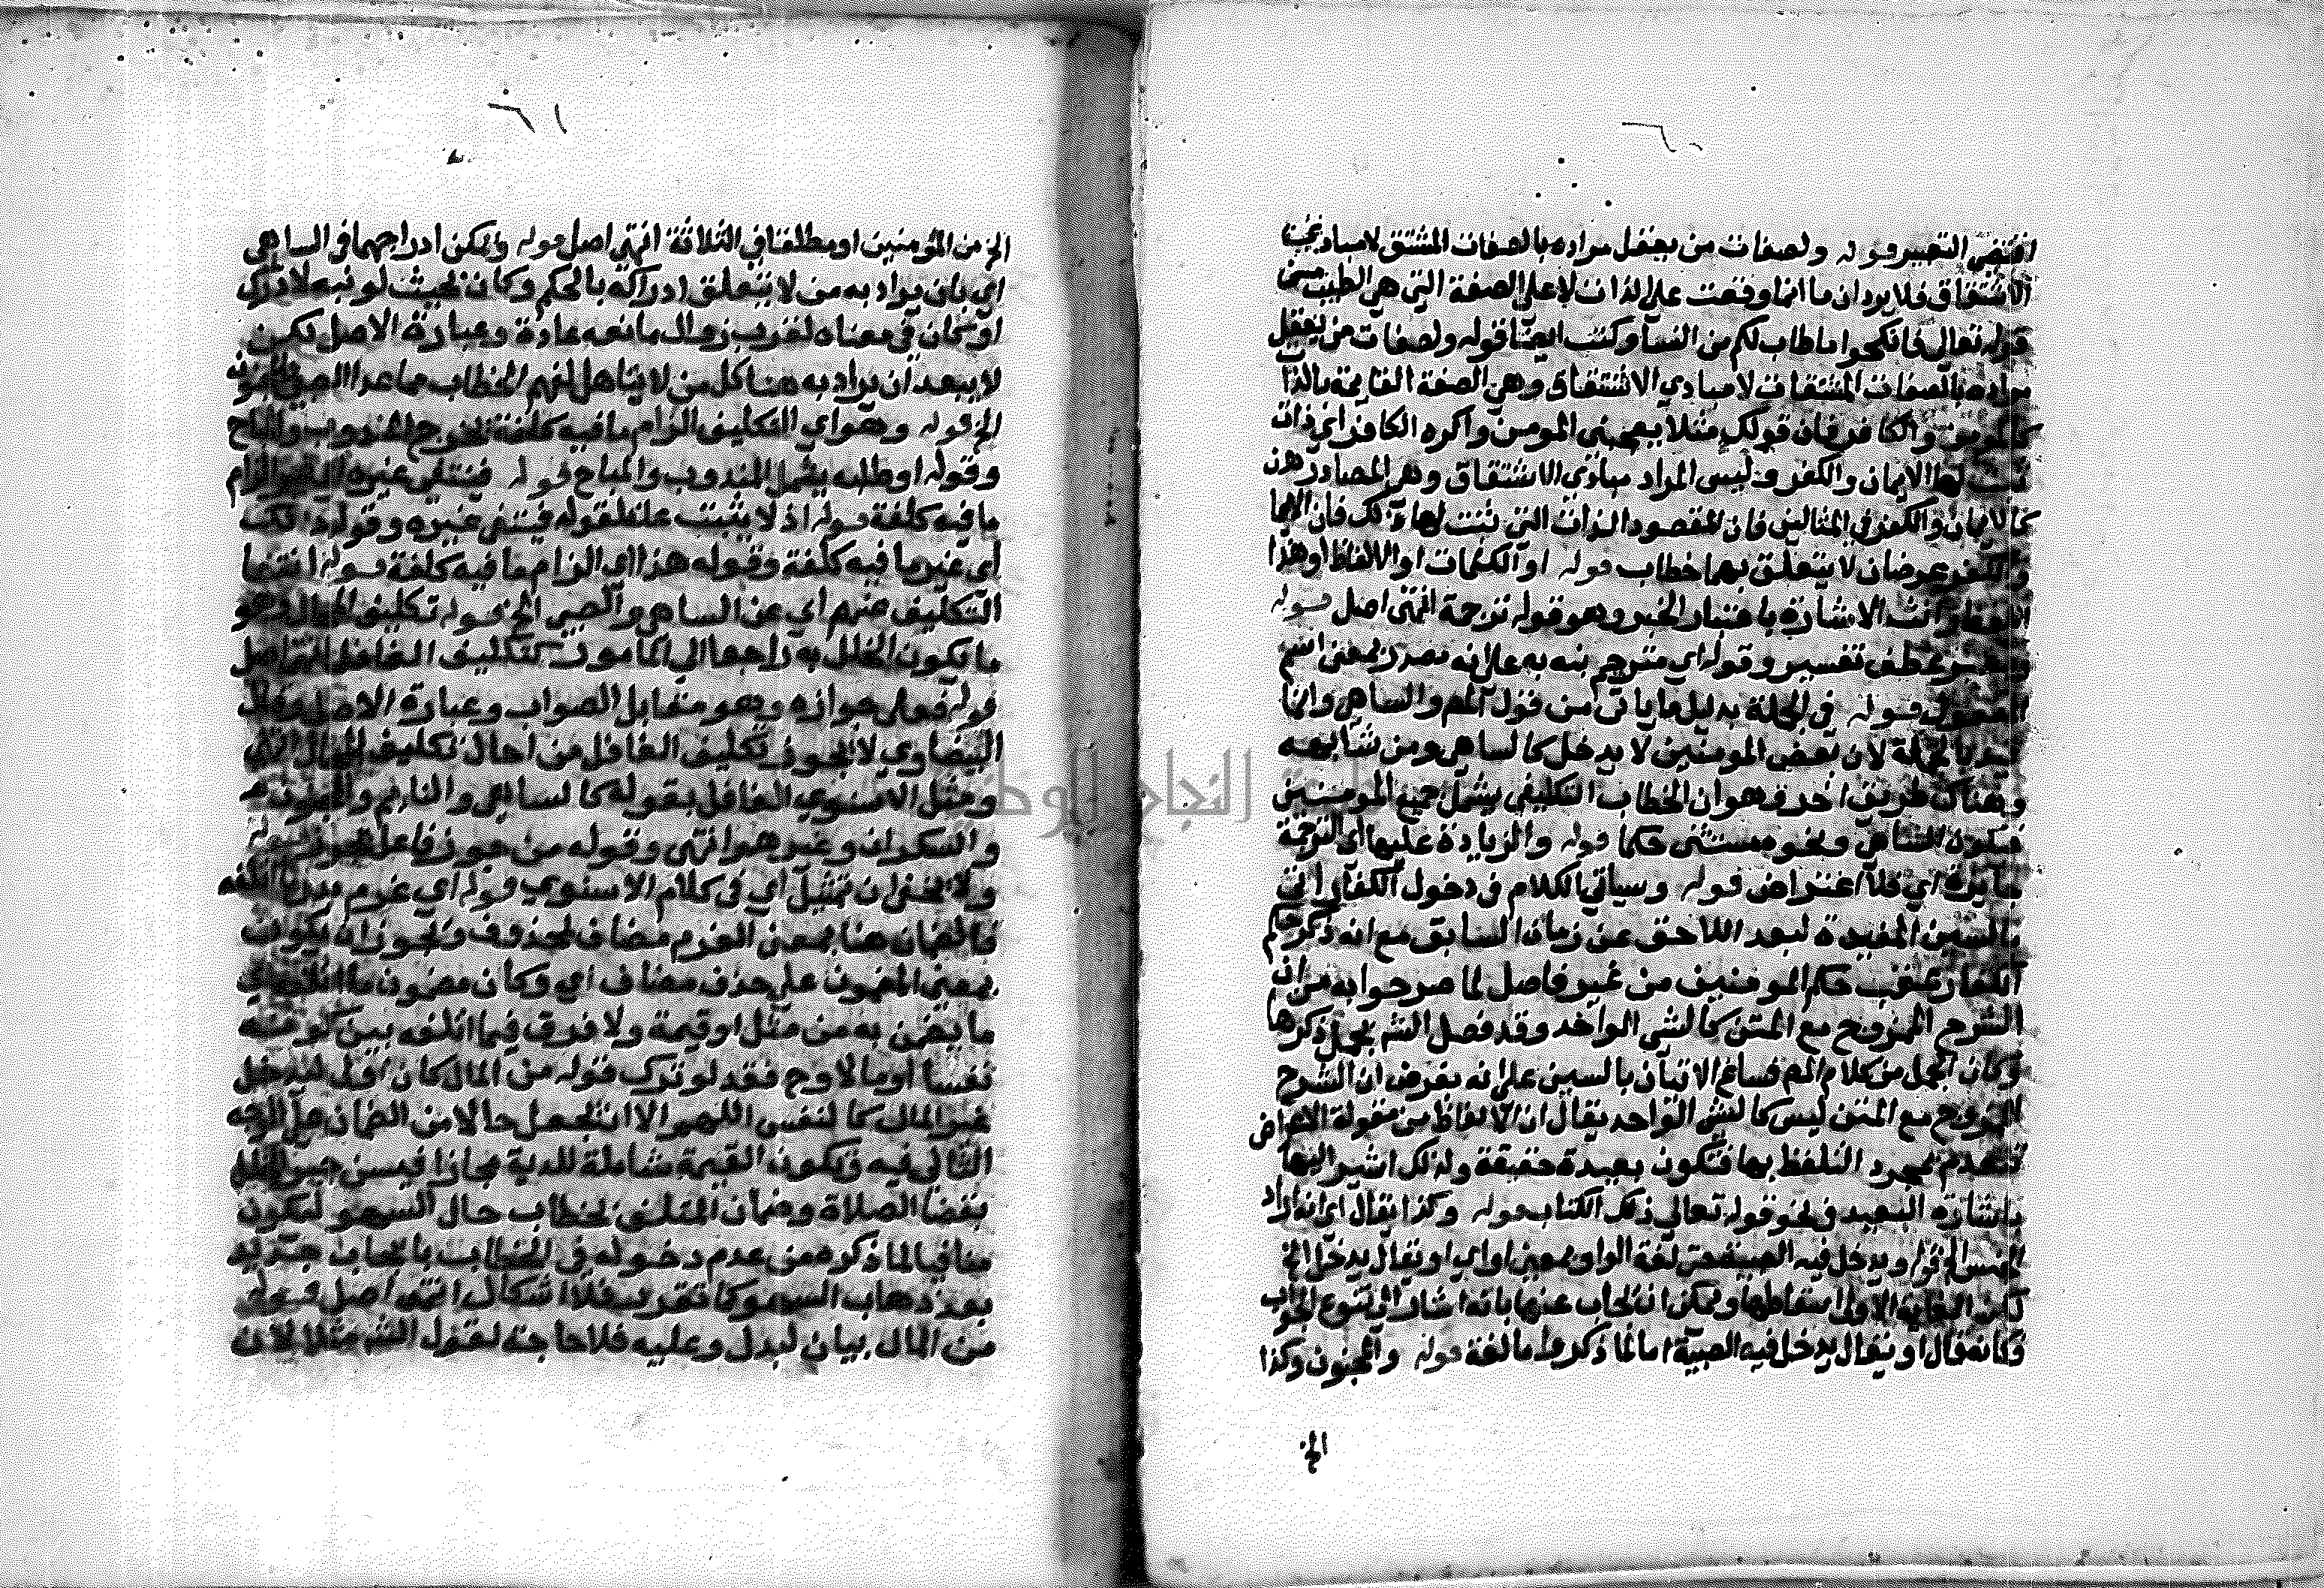 ٦٠
اقتضى التعبير قوله ولصفات من يعقل مراده بالصفات المشتق لا مبادئ
الاشتقاق فلا يرد ان ما انما وقعت على الذات لا على الصفة التي هي الطيب
قوله تعالى فانكحوا ما طاب لكم من النسا وكتب ايضا قوله ولصفات من يعقل
مراده بالصفات المشتقات لا مبادي الاشتقاق وهي الصفة القايمة بالذات
كالمومن والكافر فان قولك مثلا يعجبني المومن واكره الكافر اي ذات
ثبت لها الايمان والكفر وليس المراد مبادي الاشتقاق وهي المصادر
كالايمان والكفر في المثالين فان المقصود الذات التي ثبت لها ذلك فان الايما
والكفر عرضان لا يتعلق بهما خطاب قوله او الكلمات او الالفاظ او هذا
الاشارة باعتبار الخبر وهو قوله ترجمة انتهى اصل قوله
عطف تفسير وقوله اي مترجم بنه به على انه مصدر بمعنى اسم
المفعول قوله في الجملة بدليل ما ياتي من قول المص والساهي وانما
قيد بالجملة لان بعض المومنين لا يدخل كالساهي ومن شابهه
وهناك طريق اخر وهو ان الخطاب التكليفي يشمل جميع المومنين
فيكون الساهي ونحوه مستثنى حكما قوله والزيادة عليها اي الترجمة
جايزة اي فلا اعتراض قوله وسياتي الكلام في دخول الكفار اتى
بالسين المفيدة لبعد اللاحق عن زمان السابق مع انه ذكر حكم
الكفار عقب حكم المومنين من غير فاصل لما صرحوا به من ان
الشرح الممزوج مع المتن كالشي الواحد وقد فصل الش بجمل ذكرها
وكان الجمل من كلام المص فساغ الاتيان بالسين على انه بفرض ان الشرح
الممزوج مع المتن ليس كالشي الواحد يقال ان الالفاظ من مقولة الاعراض
تنعدم بمجرد التلفظ بها فتكون بعيدة حقيقة ولذلك اشير اليها
باشارة البعيد في نحو قوله تعالى ذلك الكتاب قوله وكذا يقال اي انه اراد
ويدخل فيه الواو بمعنى او اي او يقال يدخل الخ
لكن الاولى اسقاطها ويمكن ان يجاب عنها بانه اشار الى تنوع الجواب
وكانه قال او يقال يدخل فيه الصبية اما لما ذكر واما لغة قوله والمجنون وكذا
الخ
٦١
الخ من المومنين او مطلقا في الثلاثة انتهى اصل قوله ويمكن ادراجهما في الساهي
اي بان يراد به من لا يتعلق ادراكه بالحكم وكان بحيث لو نبه لادرك
او كان في معناه لقرب زوال مانعه عادة وعبارة الاصل لكن
لا يبعد ان يراد به هنا كل من لا يتاهل لفهم الخطاب مما عدا الصبي
الخ قوله وهو اي التكليف الزام ما فيه كلفة فخرج المندوب والمباح
وقوله او طلبه يشمل المندوب والمباح قوله فينتفي غيره اي الزام
ما فيه كلفة قوله اذ لا يثبت علة لقوله فينتفي غيره وقوله ذلك
اي غير ما فيه كلفة وقوله هذا اي الزام ما فيه كلفة قوله انتفا
التكليف عنهم اي عن الساهي والصبي الخ قوله تكليف المحال وهو
ما يكون الخلل به راجعا الي المامور كتكليف الغافل انتهى اصل
قوله فعلى جوازه وهو مقابل الصواب وعبارة الاصل وقال
البيضاوي لا يجوز تكليف الغافل من احال تكليف المحال انتهى
ومثل الاسنوي الغافل بقوله كالساهي والنايم والمجنون
والسكران وغيرهم انتهى وقوله من جوز فاعل قوله
ولا يخفى ان تمثيل اي في كلام الاسنوي قوله اي غرم بدل ما اتلفه
فالضمان هنا بمعنى الغرم مضاف لمحذوف ويجوز ان يكون
بمعنى المضمون على حذف مضاف اي وكان مضمون ما اتلفه اي
ما يضمن به من مثل او قيمة ولا فرق فيما اتلفه بين كونه
نفسا او مالا وح فقد لو ترك قوله من المال كان اولى ليدخل
غير المال كالنفس اللهم الا ان تجعل حالا من الضمان على الوجه
الثاني فيه وتكون القيمة شاملة للدية مجازا فيسن
بقضا الصلاة وضمان المتلف لخطاب حال السهو ليكون
منافيا لما ذكره من عدم دخوله في الخطاب بالخطاب جديد
بعد ذهاب السهو كما تقرر فلا اشكال انتهى اصل قوله
من المال بيان لبدل وعليه فلا حاجة لقول الش مثلا لان